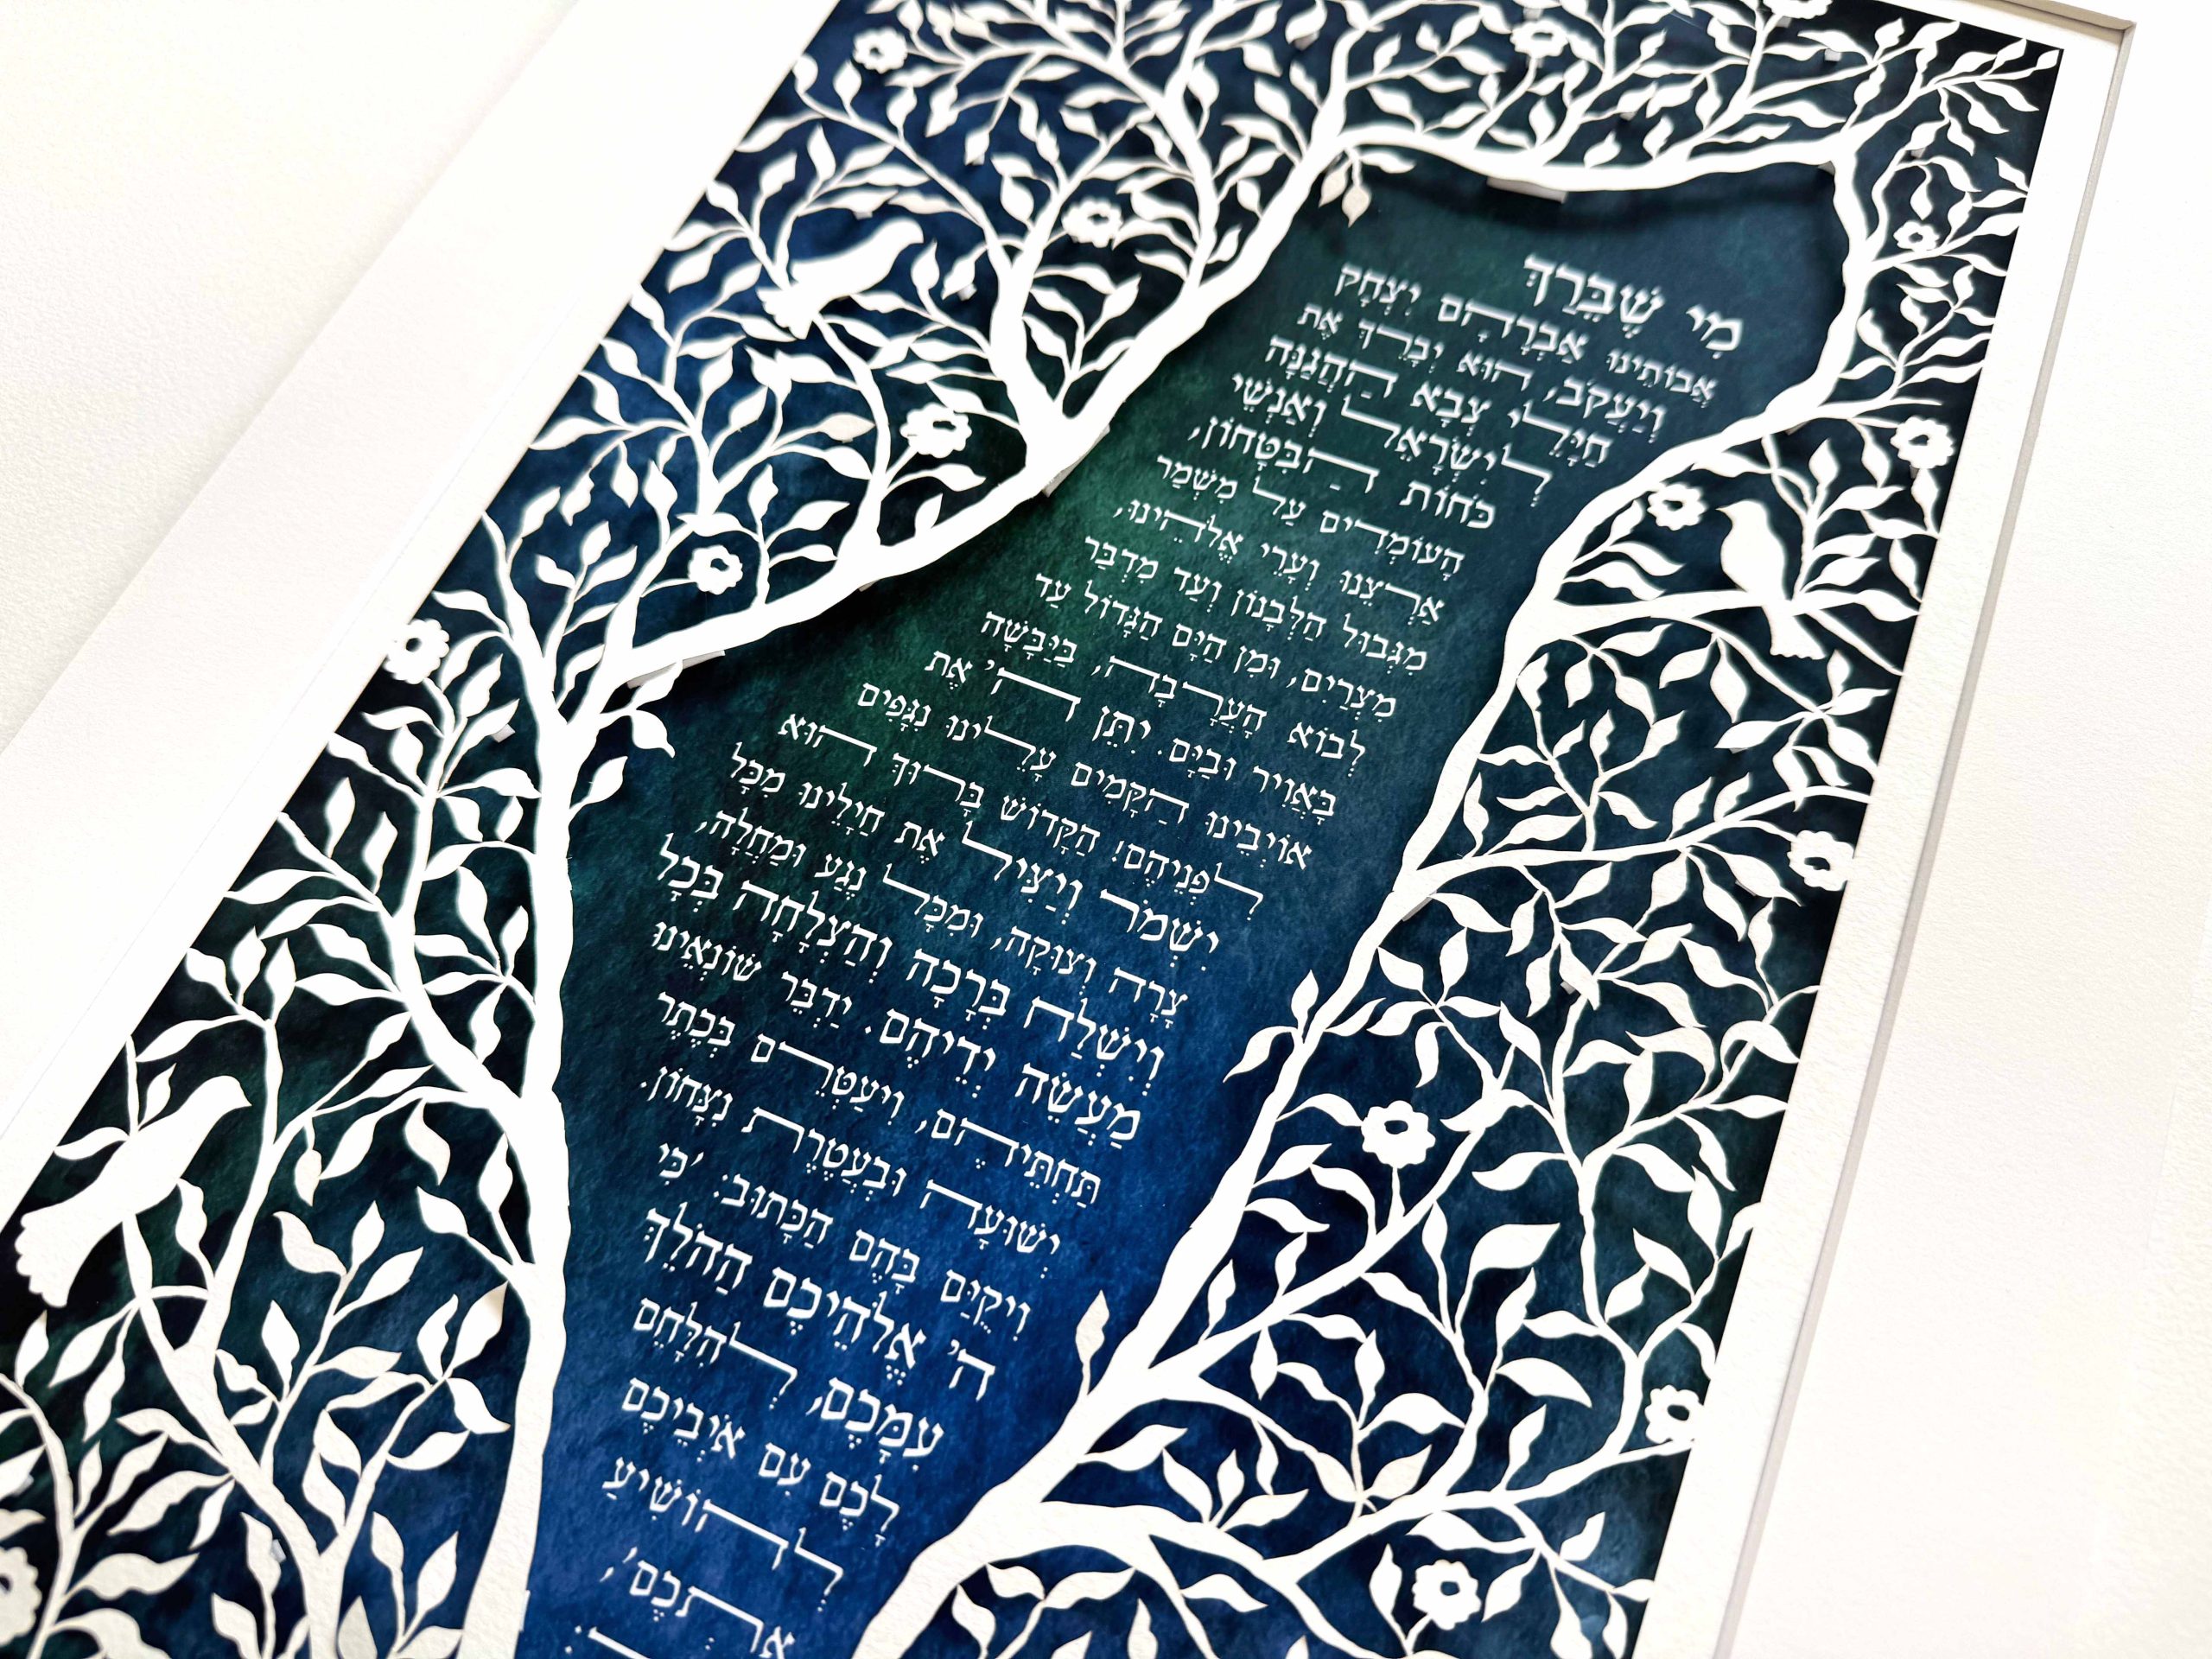 מִי שֶׁבֵּרַךְ
אֲבוֹתֵינוּ אַבְרָהָם יִצְחָק
וְיַעֲקֹב, הוּא יְבָרֵךְ אֶת
חַיָּלֵי צְבָא הַהֲגַנָּה
לְיִשְׂרָאֵל וְאַנְשֵׁי
כֹּחוֹת הַבִּטָּחוֹן,
הָעוֹמְדִים עַל מִשְׁמַר
אַרְצֵנוּ וְעָרֵי אֱלֹהֵינוּ,
מִגְּבוּל הַלְּבָנוֹן וְעַד מִדְבַּר
מִצְרַיִם, וּמִן הַיָּם הַגָּדוֹל עַד
לְבוֹא הָעֲרָבָה, בַּיַּבָּשָׁה
בָּאֲוִיר וּבַיָּם. יִתֵּן ה' אֶת
אוֹיְבֵינוּ הַקָּמִים עָלֵינוּ נִגָּפִים
לִפְנֵיהֶם! הַקָּדוֹשׁ בָּרוּךְ הוּא
יִשְׁמֹר וְיַצִּיל אֶת חַיָּלֵינוּ מִכָּל
צָרָה וְצוּקָה, וּמִכָּל נֶגַע וּמַחֲלָה,
וְיִשְׁלַח בְּרָכָה וְהַצְלָחָה בְּכָל
מַעֲשֵׂה יְדֵיהֶם. יַדְבֵּר שׂוֹנְאֵינוּ
תַּחְתֵּיהֶם, וִיעַטְּרֵם בְּכֶתֶר
יְשׁוּעָה וּבַעֲטֶרֶת נִצָּחוֹן.
וִיקֻיַּם בָּהֶם הַכָּתוּב: 'כִּי
ה' אֱלֹהֵיכֶם הַהֹלֵךְ
עִמָּכֶם, לְהִלָּחֵם
לָכֶם עִם אֹיְבֵיכֶם
לְהוֹשִׁיעַ
אֶתְכֶם',